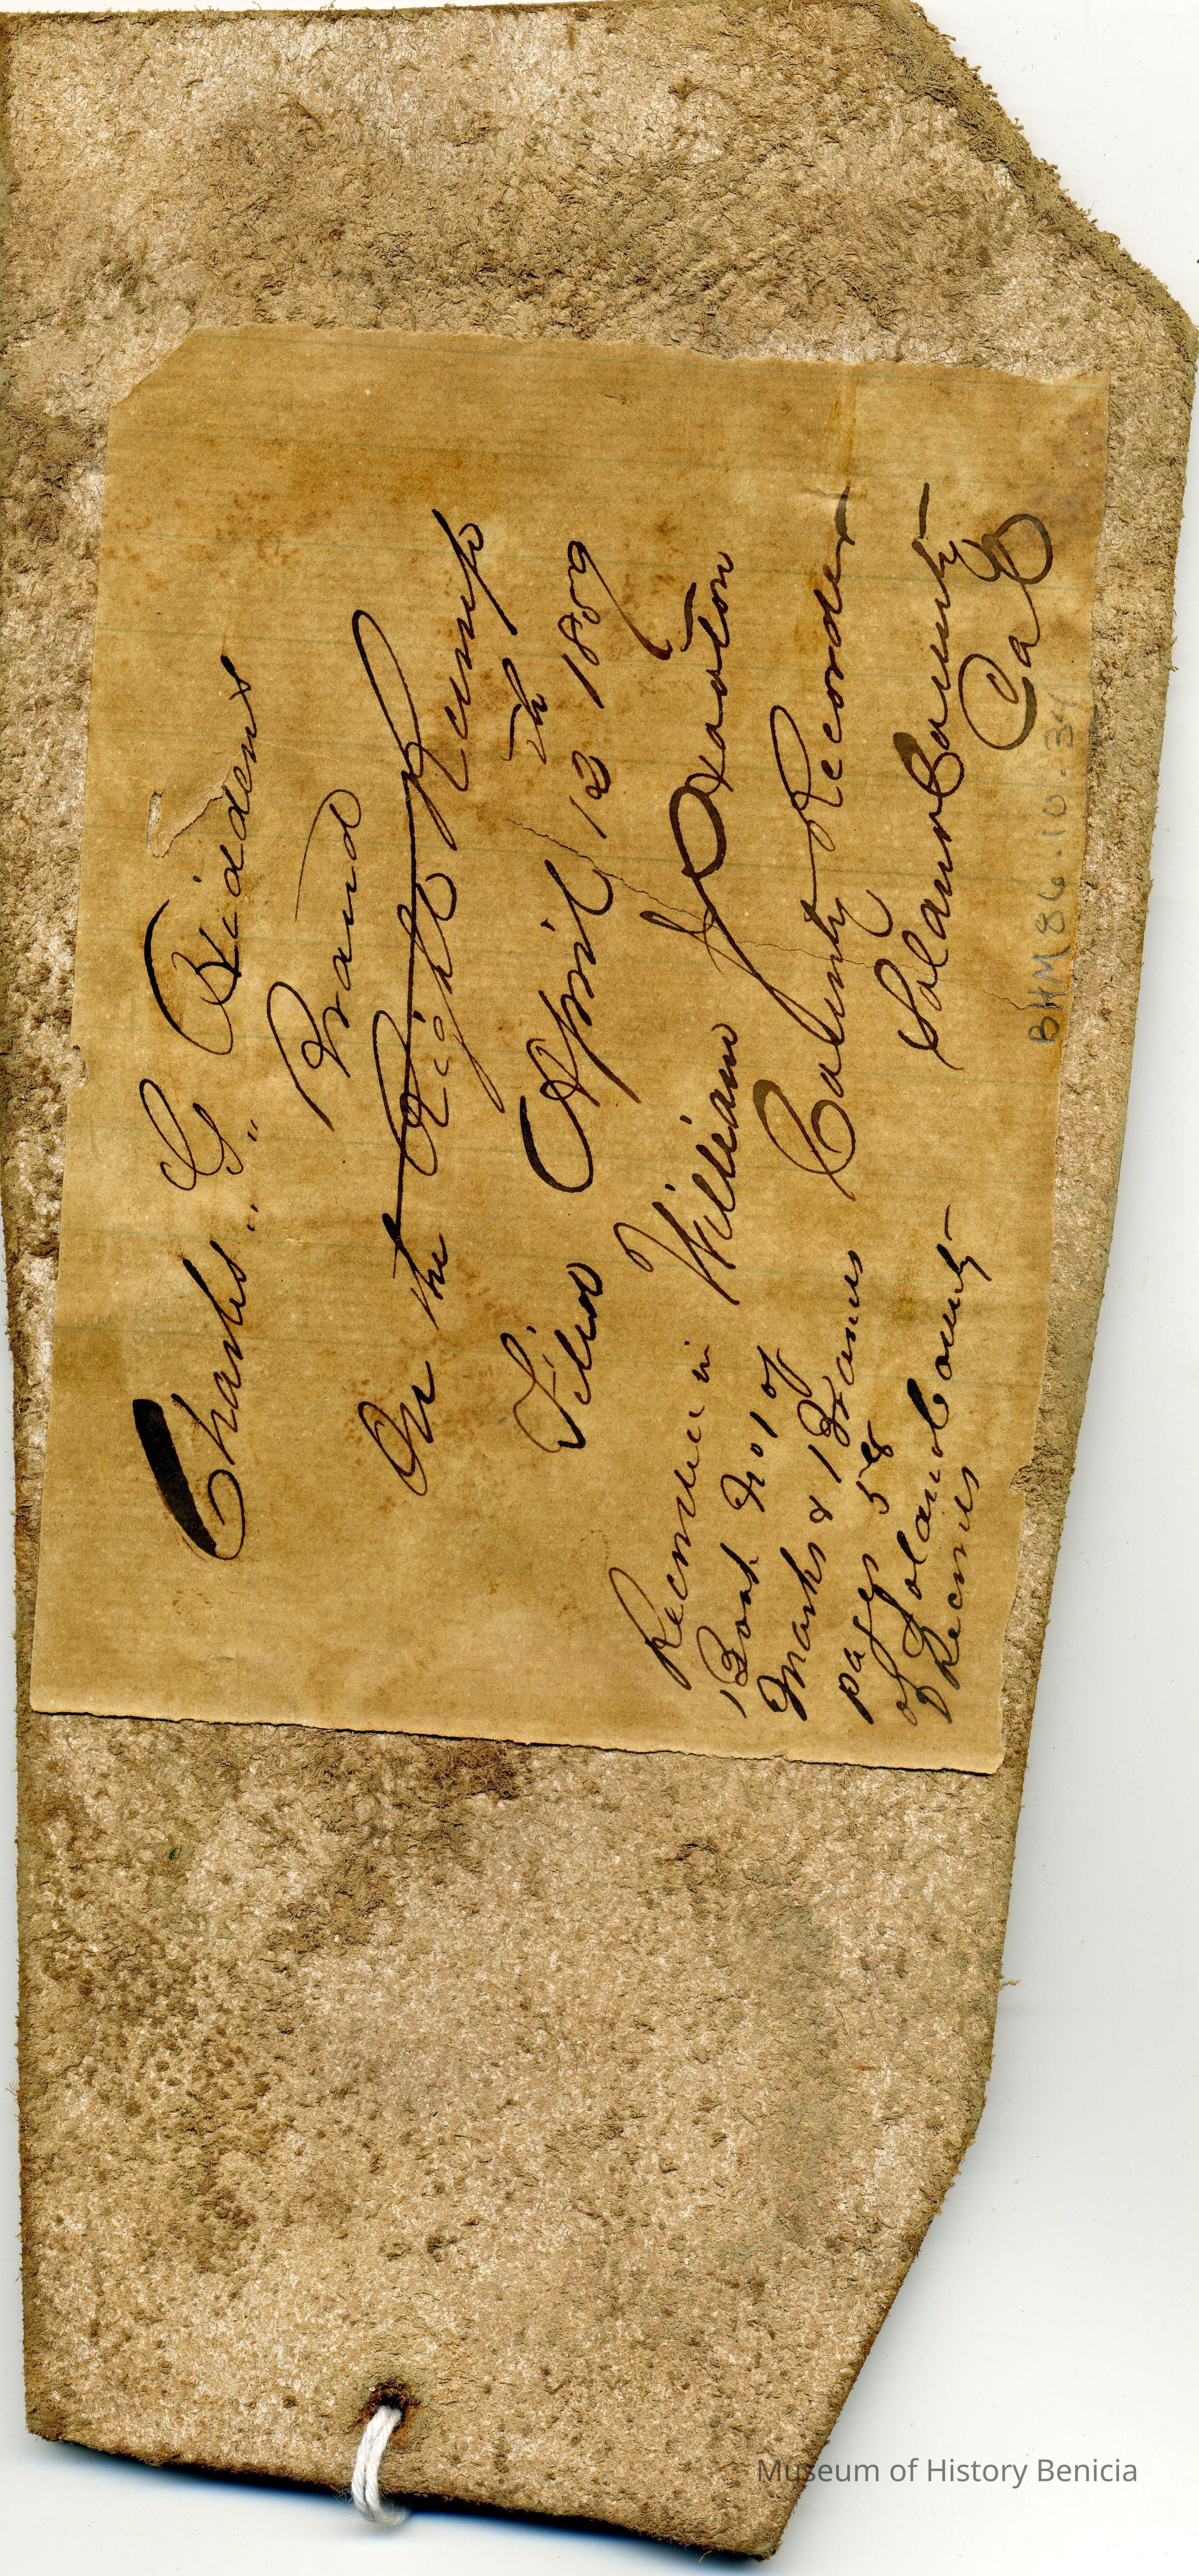 Charles G Biddens
Brand
On the Right Rump
Filed April 13th 1889
William J Oxarton
County Recorder
Solano County
Cal
Recorded in
Book No 1 of
Marks & Brands
page 58
of Solano County
Records
BHM 86.10.34
Museum of History Benicia